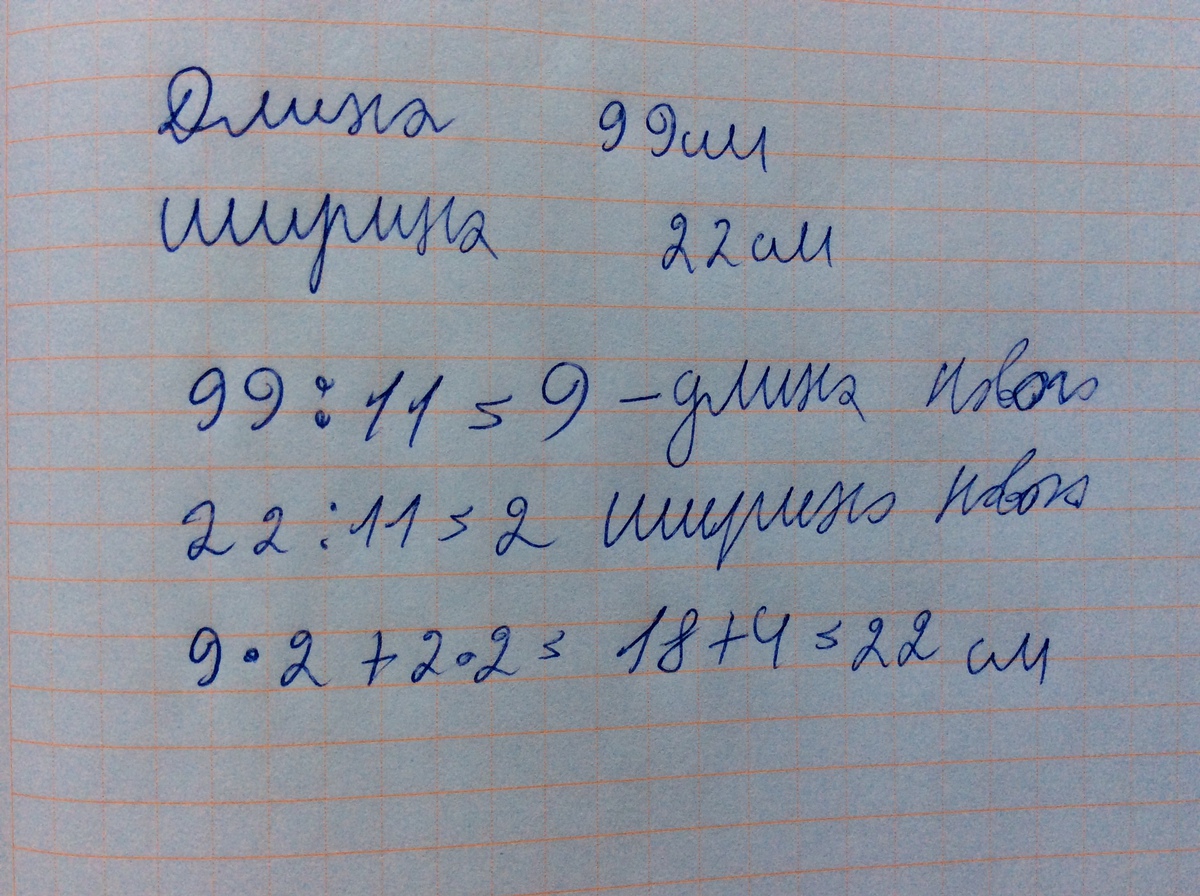 Длина 99см
ширина 22см
99:11=9 – длина нового
22:11=2 ширина нового
9•2+2•2= 18+4=22 см